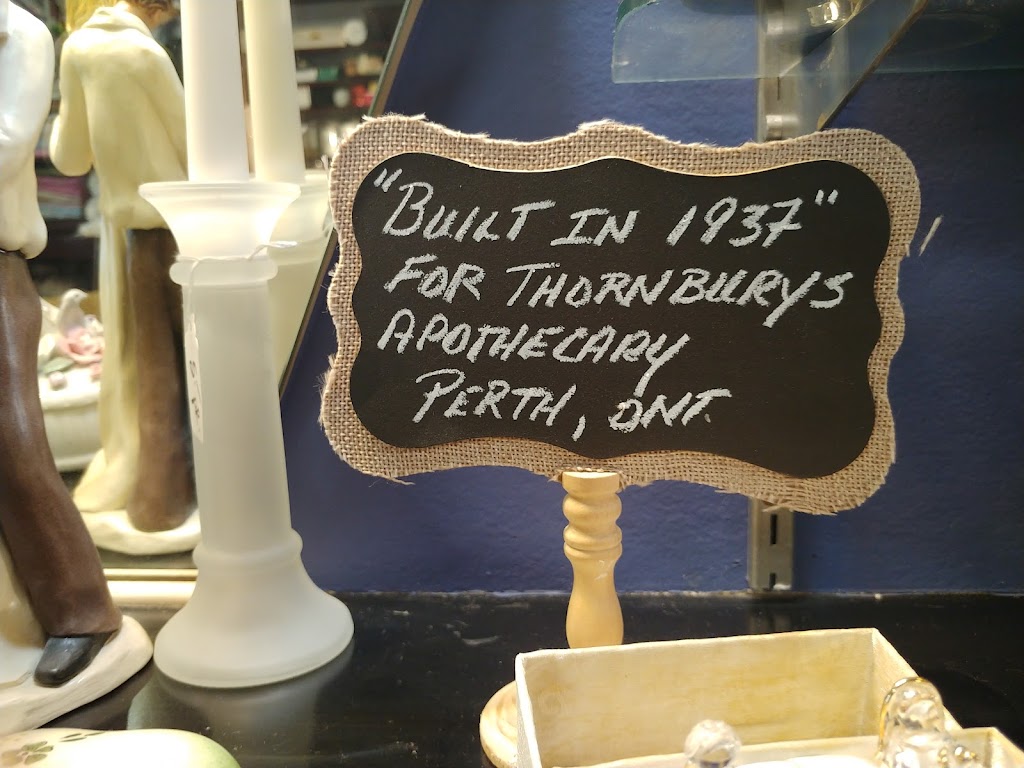 "BUILT IN 1937"
FOR THORNBURYS
APOTHECARY
PERTH, ONT.